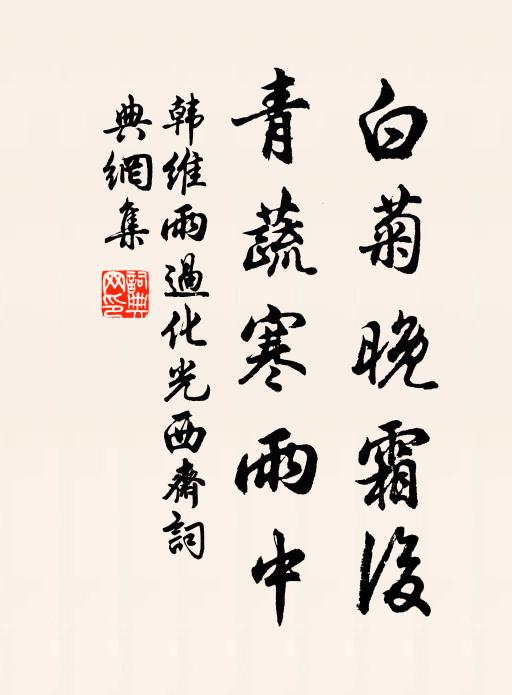 白菊晚霜後
青蔬寒雨中
韩维雨過化光西齋詞
典網集
詞典網印